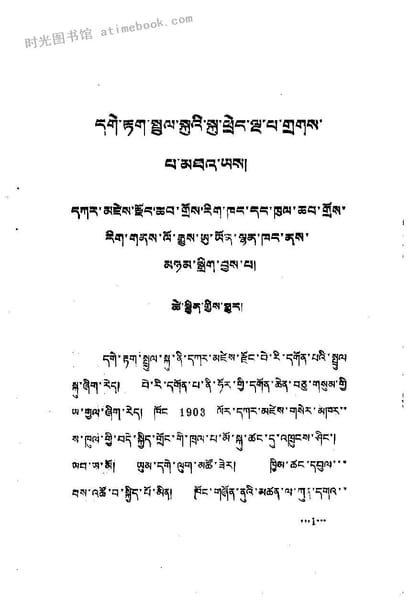 时光图书馆 atimebook.com
དགེ་རྟག་སྤྲུལ་སྐུའི་སྐུ་ཕྲེང་ལྔ་པ་གྲགས་
པ་མཐའ་ཡས།
དཀར་མཛེས་རྫོང་ཆབ་གྲོས་རིག་ཁང་དང་ཁུལ་ཆབ་གྲོས་
རིག་གནས་ལོ་རྒྱུས་ཨུ་ཡོན་ལྷན་ཁང་ནས་
མཉམ་སྒྲིག་བྱས་པ།
ཚེ་སྦྱིན་གྱིས་སྒྱུར།
དགེ་རྟག་སྤྲུལ་སྐུ་ནི་དཀར་མཛེས་རྫོང་བེ་རི་དགོན་པའི་སྤྲུལ་
སྐུ་ཞིག་རེད། བེ་རི་དགོན་པ་ནི་ཧོར་གྱི་དགོན་ཆེན་བཅུ་གསུམ་གྱི་
ཡ་གྱལ་ཞིག་རེད། ཁོང་ 1903 ལོར་དཀར་མཛེས་གསེར་མཁར་
ས་ཁུལ་གྱི་བདེ་སྐྱིད་གྲོང་གི་ཁྲལ་པ་མོ་སྐུ་ཚང་དུ་འཁྲུངས་ཤིང་།
ཡབ་ཨ་མོ། ཡུམ་དགེ་ལུག་མཚོ་ཟེར། ཁྱིམ་ཚང་དབུལ་
བས་འཚོ་བ་སྐྱིད་པོ་མིན། ཁོང་གཞོན་ནུའི་མཚན་ལ་ཀུན་དགའ་
···1···